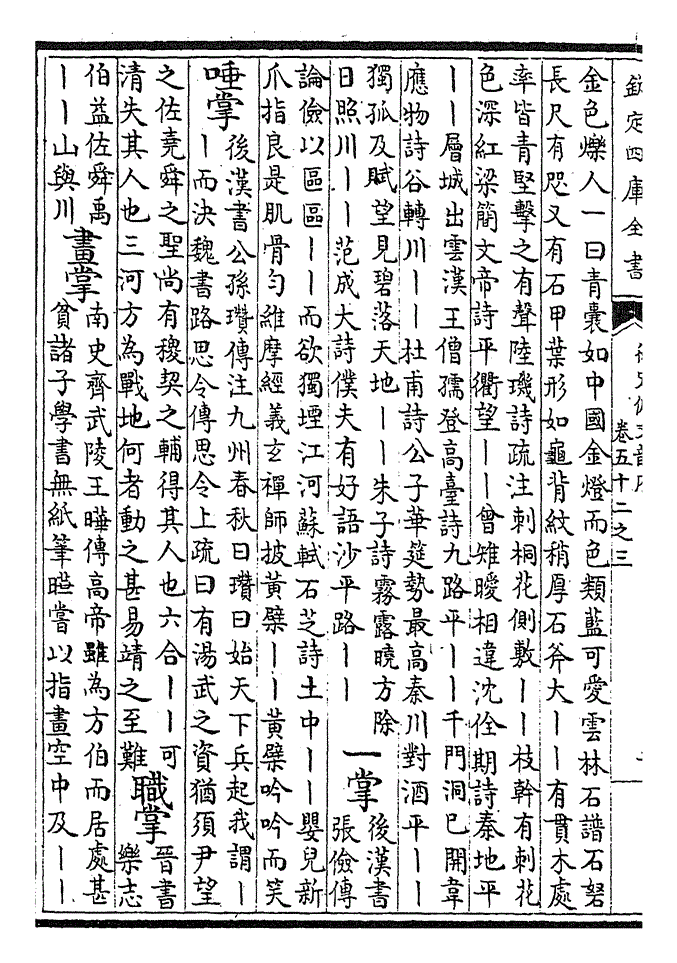 欽定四庫全書
卷五十二之三
金色爍人一曰青囊如中國金燈而色類藍可愛雲林石譜石弩
長尺有咫又有石甲葉形如龜背紋稍厚石斧大丨丨有貫木處
率皆青堅擊之有聲陸璣詩疏注刺桐花側敷丨丨枝幹有刺花
色深紅梁簡文帝詩平衢望丨丨曾雉曖相違沈佺期詩秦地平
丨丨層城出雲漢王僧孺登高臺詩九路平丨丨千門洞已開韋
應物詩谷轉川丨丨杜甫詩公子華筵勢最高秦川對酒平丨丨
獨孤及賦望見碧落天地丨丨朱子詩霧露曉方除
日照川丨丨范成大詩僕夫有好語沙平路丨丨
一掌
後漢書
張儉傳
論儉以區區丨丨而欲獨堙江河蘇軾石芝詩土中丨丨嬰兒新
爪指良是肌骨勻維摩經義玄禪師披黃檗丨丨黃檗吟吟而笑
唾掌
後漢書公孫瓚傳注九州春秋曰瓚曰始天下兵起我謂丨
丨而決魏書路思令傳思令上疏曰有湯武之資猶須尹望
之佐堯舜之聖尚有稷契之輔得其人也六合丨丨可
清失其人也三河方為戰地何者動之甚易靖之至難
職掌
晉書
樂志
伯益佐舜禹
丨丨山與川
畫掌
南史齊武陵王曄傳高帝雖為方伯而居處甚
貧諸子學書無紙筆曄嘗以指畫空中及丨丨